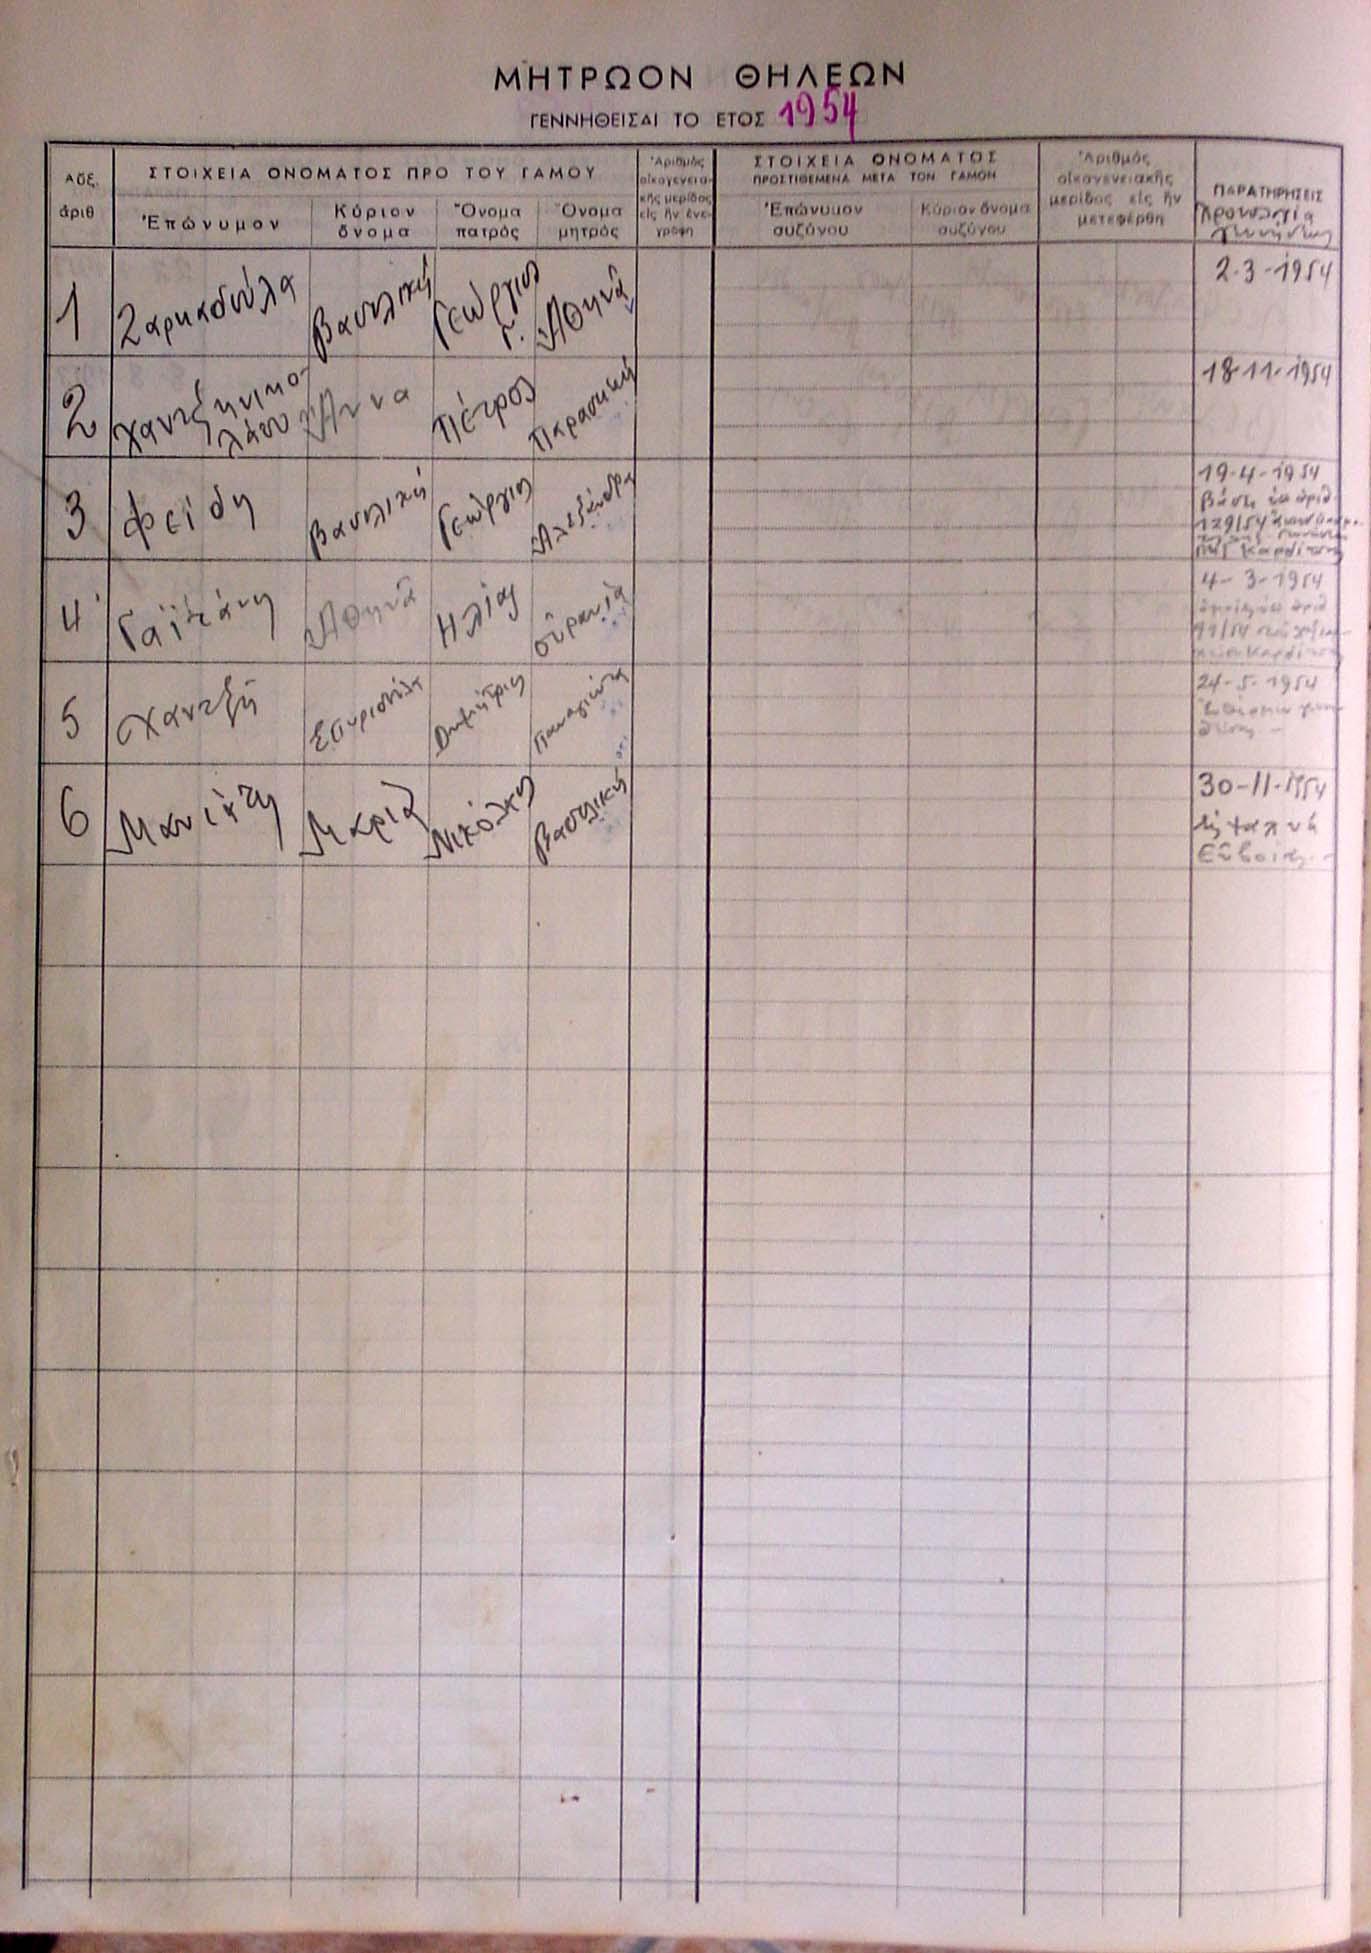 ΜΗΤΡΩΟΝ ΘΗΛΕΩΝ
ΓΕΝΝΗΘΕΙΣΑΙ ΤΟ ΕΤΟΣ 1954
Αὔξ. ἀριθ
ΣΤΟΙΧΕΙΑ ΟΝΟΜΑΤΟΣ ΠΡΟ ΤΟΥ ΓΑΜΟΥ
Ἐπώνυμον
Κύριον ὄνομα
Ὄνομα πατρός
Ὄνομα μητρός
Ἀριθμός οἰκογενεια-κῆς μερίδος εἰς ἣν ἐνε-γράφη
ΣΤΟΙΧΕΙΑ ΟΝΟΜΑΤΟΣ
ΠΡΟΣΤΙΘΕΜΕΝΑ ΜΕΤΑ ΤΟΝ ΓΑΜΟΝ
Ἐπώνυμον συζύγου
Κύριον ὄνομα συζύγου
Ἀριθμός οἰκογενειακῆς μερίδος εἰς ἣν μετεφέρθη
ΠΑΡΑΤΗΡΗΣΕΙΣ
Χρονολογία
1 Ζαρκαδούλα Βασιλική Γεώργιος Γ. Ἀθηνᾶ 2-3-1954
2 Χαντζηνικο-λάου Ἄννα Πέτρος Παρασκευή 18-11-1954
3 Φείδη Βασιλική Γεώργιος Ἀλεξάνδρα 19-4-1954
129/54
Καρδίτσης
4 Γαϊτάνη Ἀθηνᾶ Ηλίας Οὐρανία 4-3-1954
91/54
5 Χαντζῆ Σπυριδούλα Δημήτριος Παναγιώτα 24-5-1954
6 Μανιάτη Μαρία Νικόλαος Βασιλική 30-11-1954
Εὐβοίας